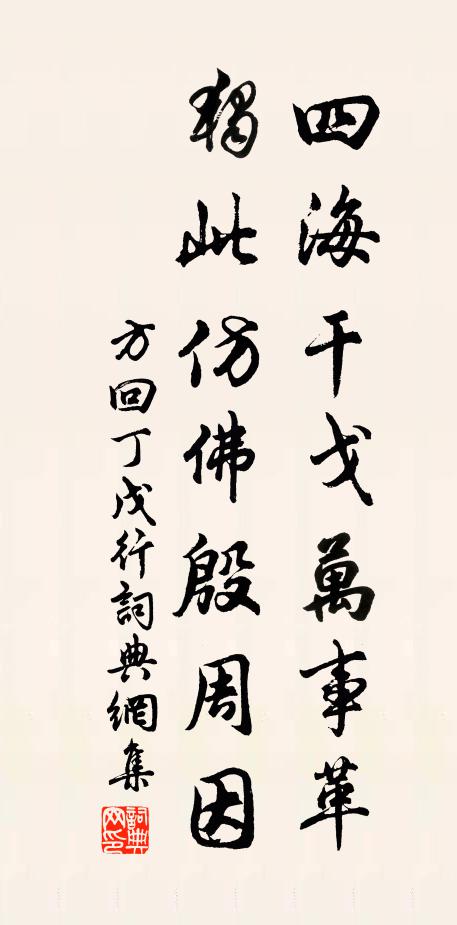 四海干戈萬事革
獨此仿佛殷周因
方回丁戊行詞典網集
詞典網印